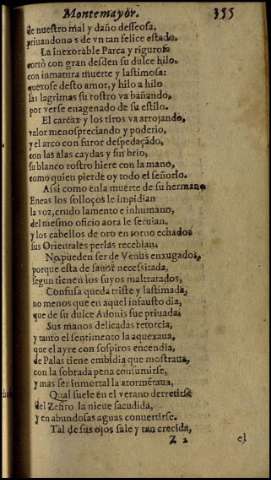 Montemayòr. 355
de nuestro mal y daño desseosa,
priuandono s de vn tan felice estado.
La inexorable Parca y rigurosa
cortò con gran desden su dulce hilo,
con inmatura muerte y lastimosa:
quexose desto amor, y hilo a hilo
las lagrimas su rostro va bañando,
por verse enagenado de su estilo.
El carcax y los tiros va arrojando,
valor menospreciando y poderio,
y el arco con furor despedaçãdo,
con las alas caydas y sin brio,
su blanco rostro hiere con la mano,
como quien pierde oy todo el señorio.
Assi como enla muerte de su hermano
Eneas los solloços le impidian
la voz, crudo lamento e inhumano,
del mesmo oficio aora le seruian,
y los cabellos de oro en torno echados
sus Orientales perlas recebian.
No pueden ser de Venus enxugados,
porque esta de fauor necessitada,
segun tienen los suyos maltratados,
Confusa queda triste y lastimada,
no menos que en aquel infausto dia,
que de su dulce Adonis fue priuada:
Sus manos delicadas retorcia,
y tanto el sentimento la aquexaua,
que el ayre con sospiros encendia,
de Palas tiene embidia que mostraua,
con la sobrada pena consumirse,
y mas ser inmortal la atormẽtaua,
Qual suele en el verano derretirse
del Zefiro la nieue sacudida,
y en abundosas aguas conuertirse.
Tal de sus ojos sale y tan crecida,
Z 2 el